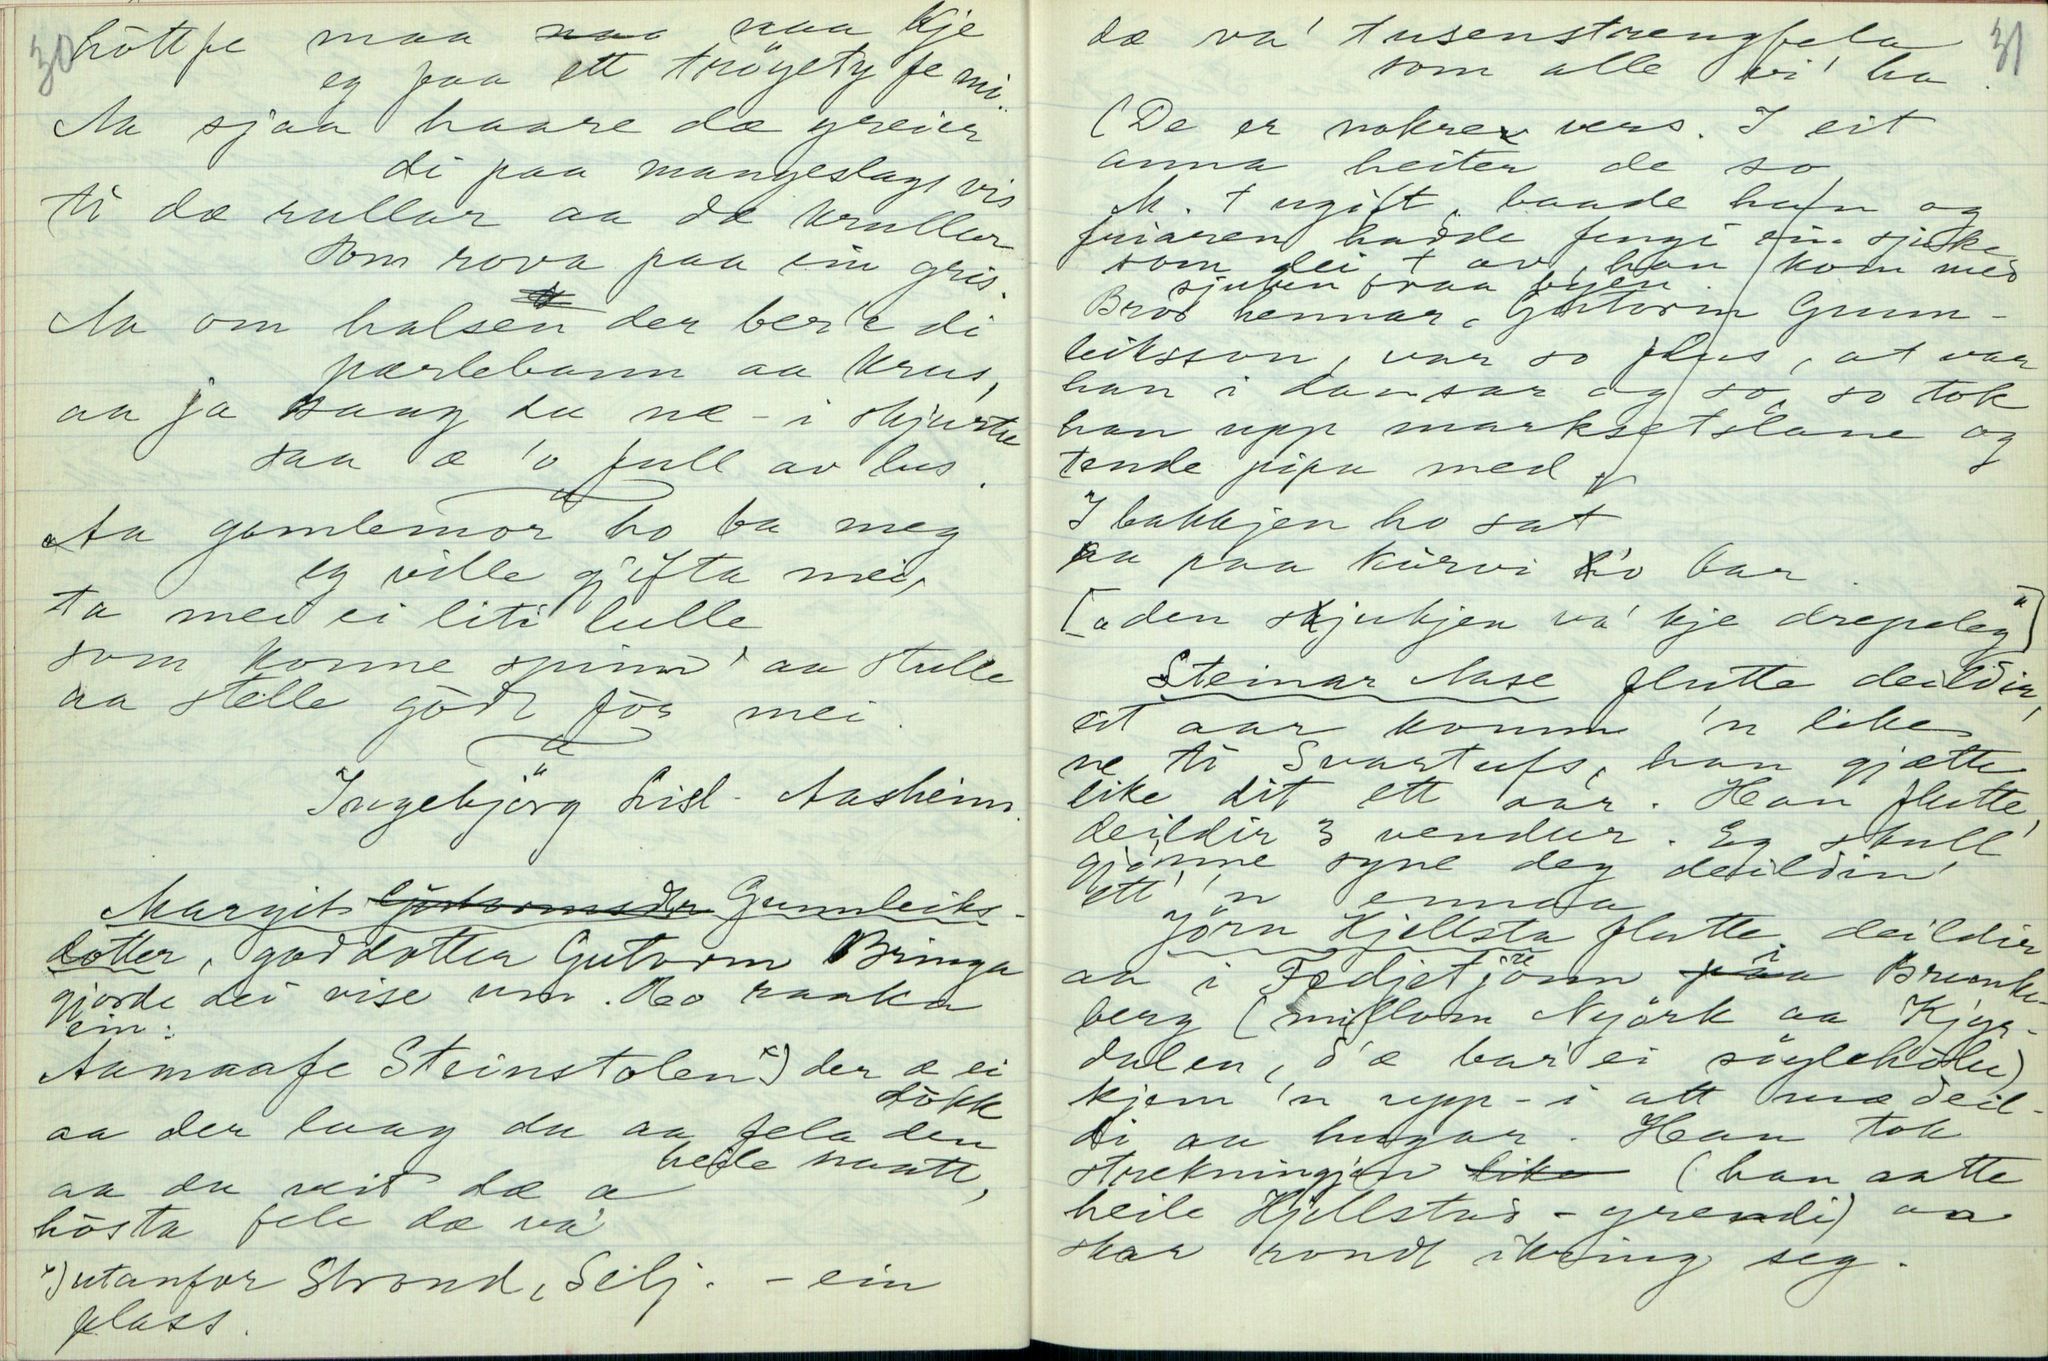 30
höttpe maa naa naa kje
eg paa ett tröyety fe mi.
Aa sjaa haare dæ greier
di paa mangeslags vis
ti dæ rullar aa dæ krullar
som rova paa ein gris.
Aa om halsen der ber'e di
pærlebann aa krus,
aa ja saag du næ-i skjurtu
saa æ 'o full av lus.
Aa gamlemor ho ba meg
eg ville gjifta mei,
ta mei ei liti lulle
som konne spinn' aa stulle
aa stelle godt för mei.
Ingebjörg Lisl-Aasheim.
Margit Gutormsdtr Gunnleiks-
dotter, goddotter Gutorm Bringa
gjorde dei vise um. Ho raaka
ein:
Aamaafe Steinstolen x) der æ ei
dökk
aa der laag du aa fela den
heile naatt,
aa du veit dæ a
hösta fele dæ va'
x) utanfor Strond, Selj. - ein
plass.
31
dæ va' tusenstrengfela
som alle vi' ha.
(De er nokre vers. I eit
anna heiter de so
M. † ugift, baade han og
friaren hadde fengi ein sjuke
som dei † av, han kom med
sjuken fraa byen.
Bror hennar, Gutorm Gunn-
leiksson, var so flus, at var
han i dansar og so, so tok
han upp marksetslane og
tende pipa med
I bakkjen ho sat
aa paa kürvi 'o bar.
["den sjukjen va' kje drepeleg"]
Steinar Aase flutte deildir,
eit aar komm 'n like
ne ti Svartufs, han gjætte
like dit ett aar. Han flutte
deildir 3 vendur. Eg skull'
gjönne syne deg deildin'
ett 'n ennaa
Jörn Hjellsta flutte deildir
aa i Fedjetjönn paa i Brunke-
berg (millom Nyörk aa Kjyr-
dalen, d'æ bar' ei söylehölu)
kjem 'n upp-i att mæ deil-
di aa hugar. Han tok
strekningjen like (han aatte
heile Hjellstad-grendi) aa
skar rondt ikring seg.